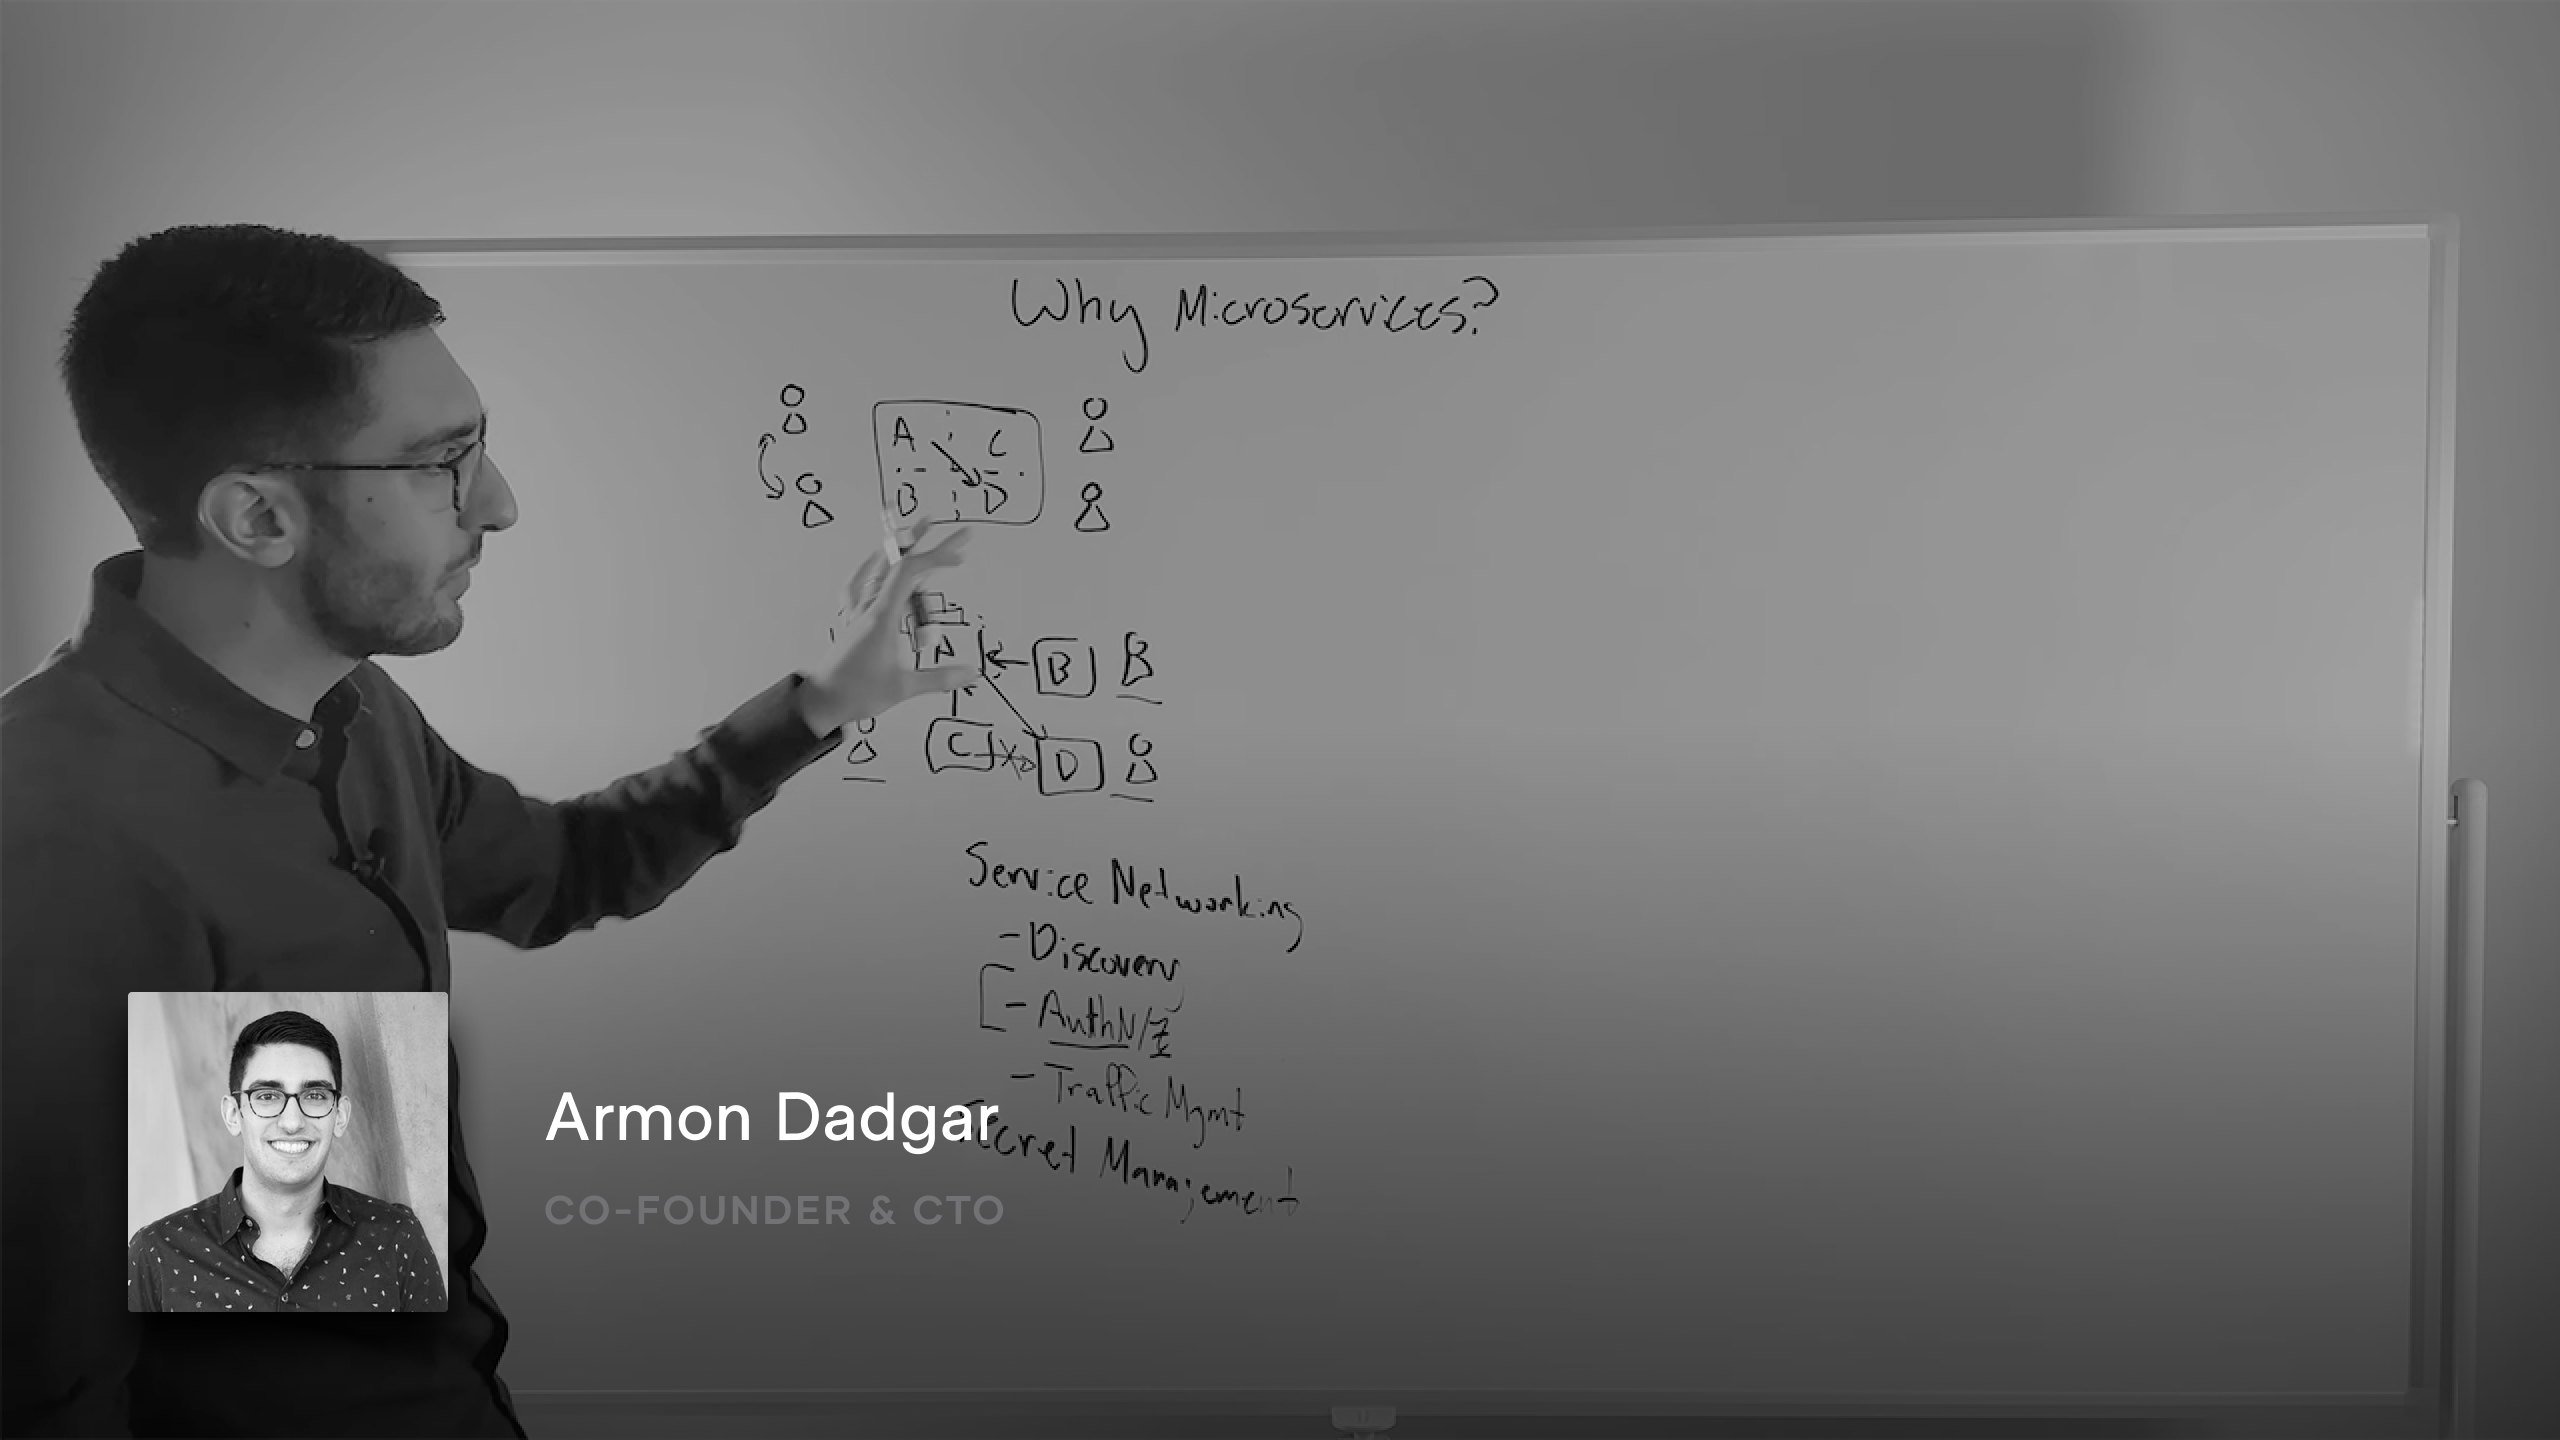 Why Microservices?
A C
B D
A B
C D
Service Networking
- Discovery
- AuthN/Z
- Traffic Mgmt
Secret Management
Armon Dadgar
CO-FOUNDER & CTO